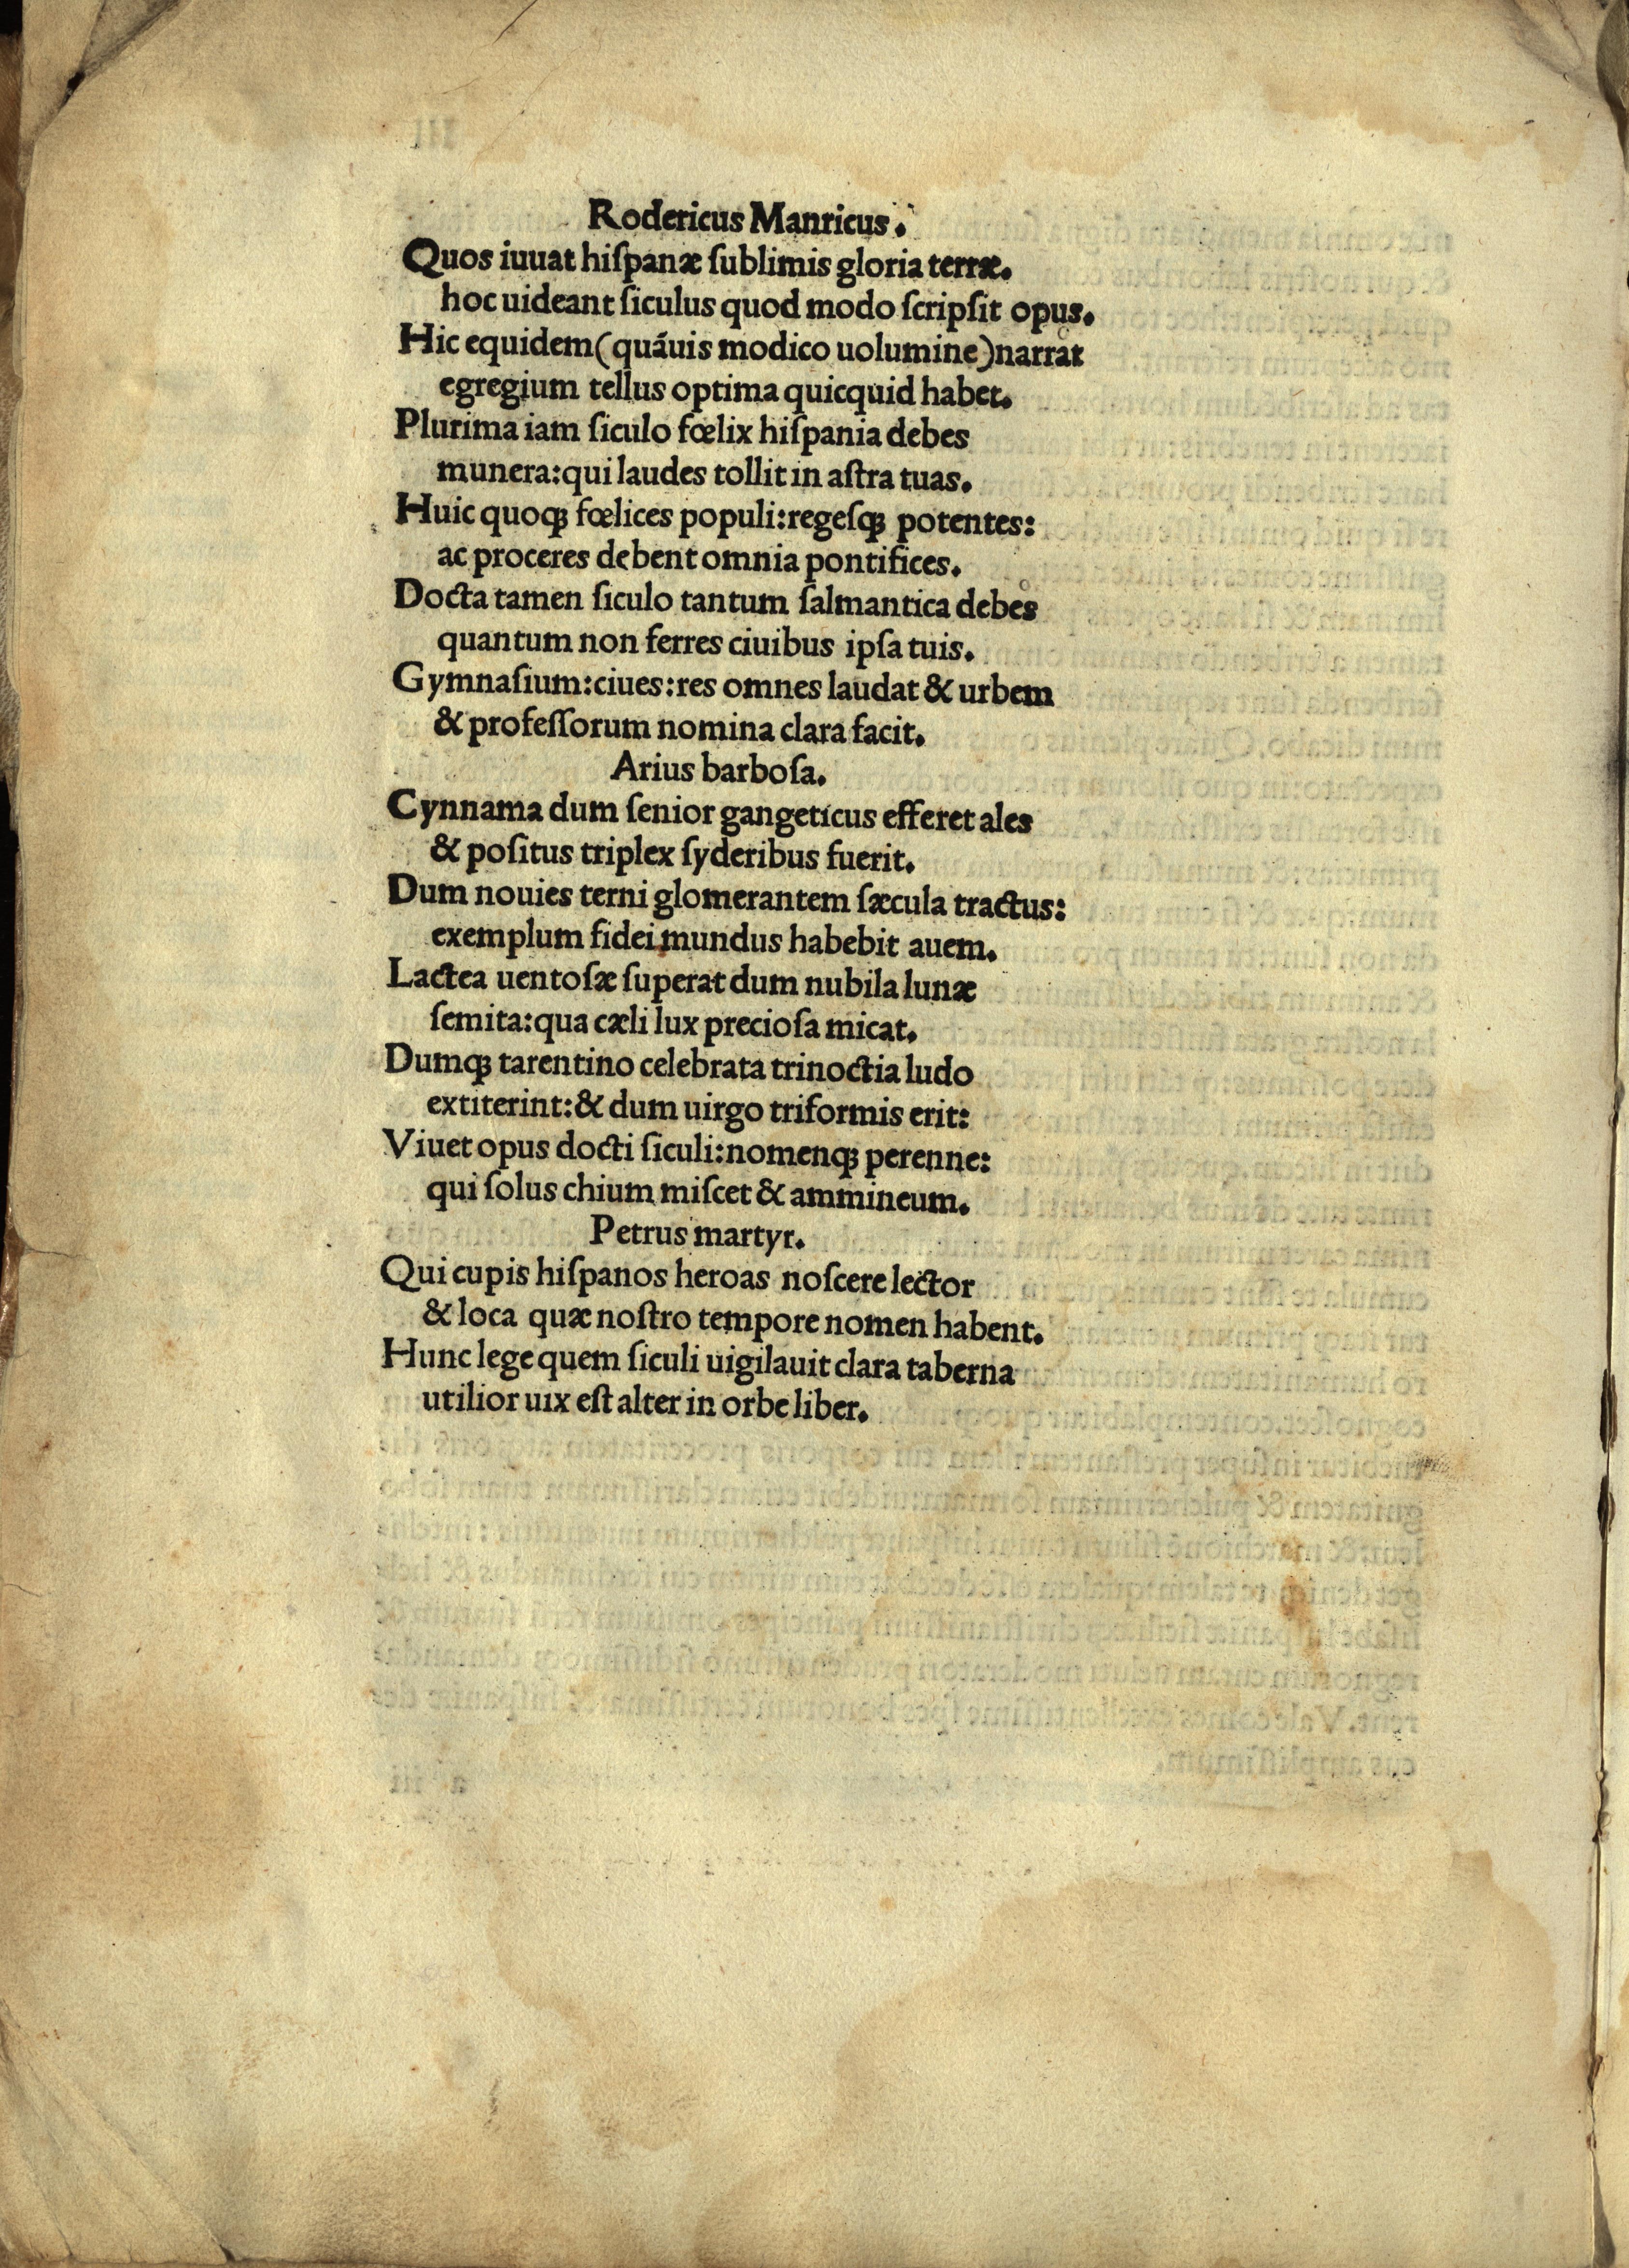 Rodericus Manricus.
Quos iuuat hiſpanæ ſublimis gloria terræ.
hoc uideant ſiculus quod modo ſcripſit opus.
Hic equidem(quãuis modico uolumine)narrat
egregium tellus optima quicquid habet.
Plurima iam ſiculo fœlix hiſpania debes
munera:qui laudes tollit in aſtra tuas.
Huic quoqꝫ fœlices populi:regeſqꝫ potentes:
ac proceres debent omnia pontifices.
Docta tamen ſiculo tantum ſalmantica debes
quantum non ferres ciuibus ipſa tuis.
Gymnaſium:ciues:res omnes laudat & urbem
& profeſſorum nomina clara facit.
Arius barboſa.
Cynnama dum ſenior gangeticus efferet ales
& poſitus triplex ſyderibus fuerit.
Dum nouies terni glomerantem ſæcula tractus:
exemplum fidei mundus habebit auem.
Lactea uentoſæ ſuperat dum nubila lunæ
ſemita:qua cæli lux precioſa micat.
Dumqꝫ tarentino celebrata trinoctia ludo
extiterint:& dum uirgo triformis erit:
Viuet opus docti ſiculi:nomenqꝫ perenne:
qui ſolus chium miſcet & ammineum.
Petrus martyr.
Qui cupis hiſpanos heroas noſcere lector
& loca quæ noſtro tempore nomen habent.
Hunc lege quem ſiculi uigilauit clara taberna
utilior uix eſt alter in orbe liber.